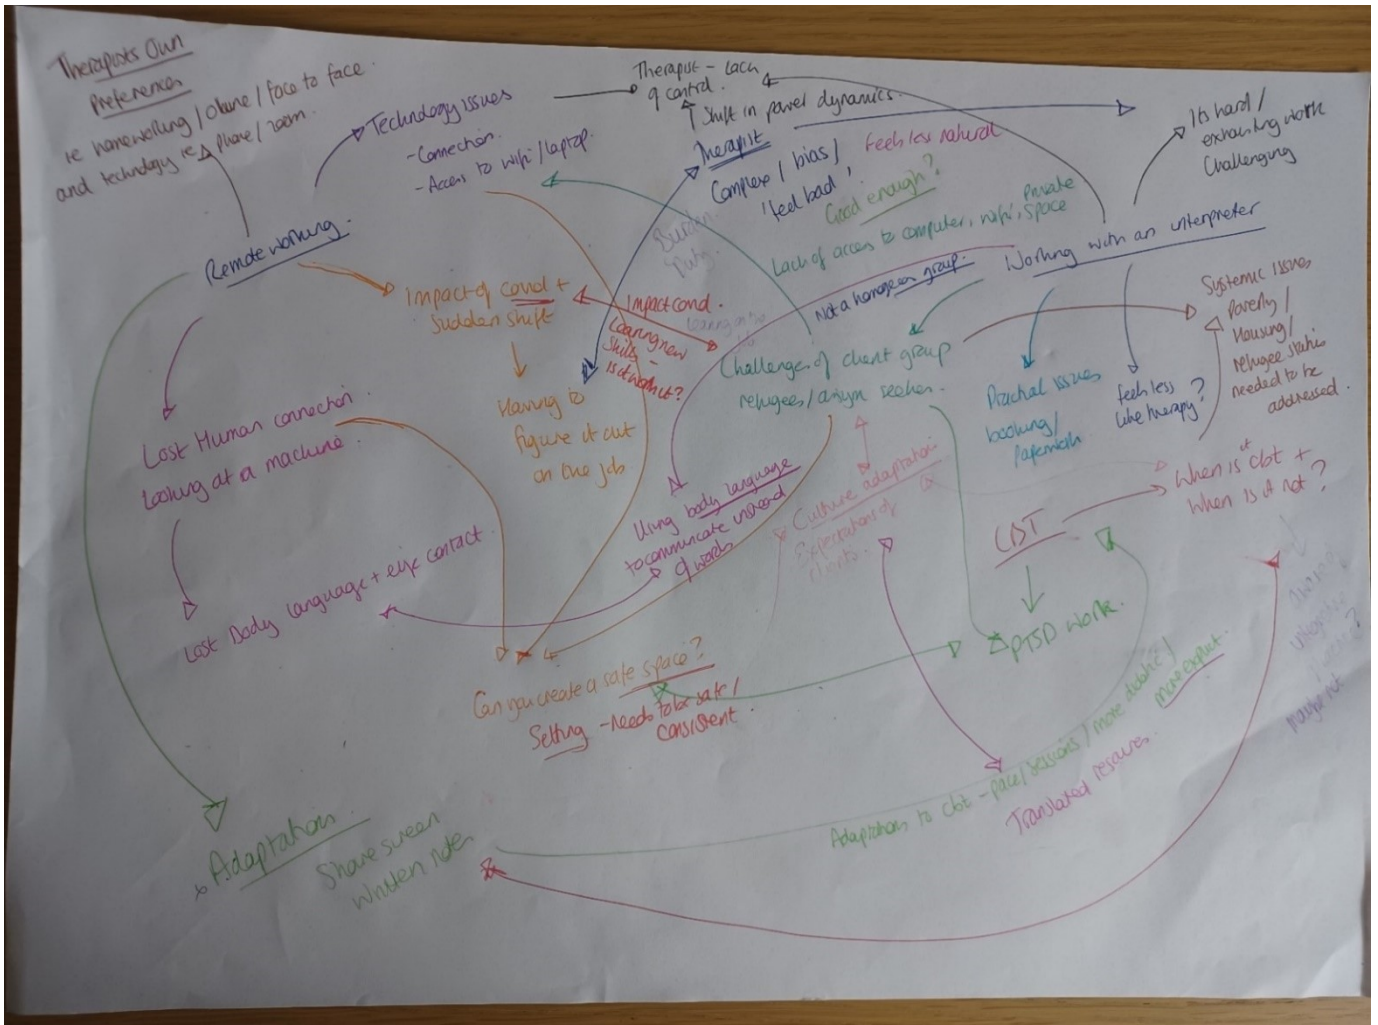 Therapists Own
Preferences
ie homeworking / Online / face to face.
and technology ie phone / zoom.
Technology issues
- Connection.
- Access to wifi / laptop.
Therapist - Lack
of control.
Shift in power dynamics.
Therapist
Complexe / bias /
'feel bad'
Feels less natural
Good enough?
Its hard /
extracting work
Challenging
Burden
Duty
Lack of access to computer, wifi, private
space
Remote working.
Working with an interpreter
Not a homogeen group.
Impact of covid +
Sudden shift
Impact covid.
Learning new
skills -
is it worth it?
Having to
figure it out
on the job.
Challenge of client group
refugees / asylum seekers.
Practical issues
booking /
paperwork
feels less
like therapy?
Systemic Issues
Poverty /
Housing /
refugee status
needed to be
addressed.
Lost Human connection
Looking at a machine
Lost Body Language + eye contact
Using body language
to communicate instead
of words
Culture adaptation.
Expectations of
clients.
When is it cbt +
When is it not?
CBT
PTSD work.
Can you create a safe space?
Setting - Needs to be safe /
consistent.
Adaptations to cbt - pace / sessions / more didatic /
more explicit
Translated resources.
maybe not
Adaptation.
Share screen
Written notes